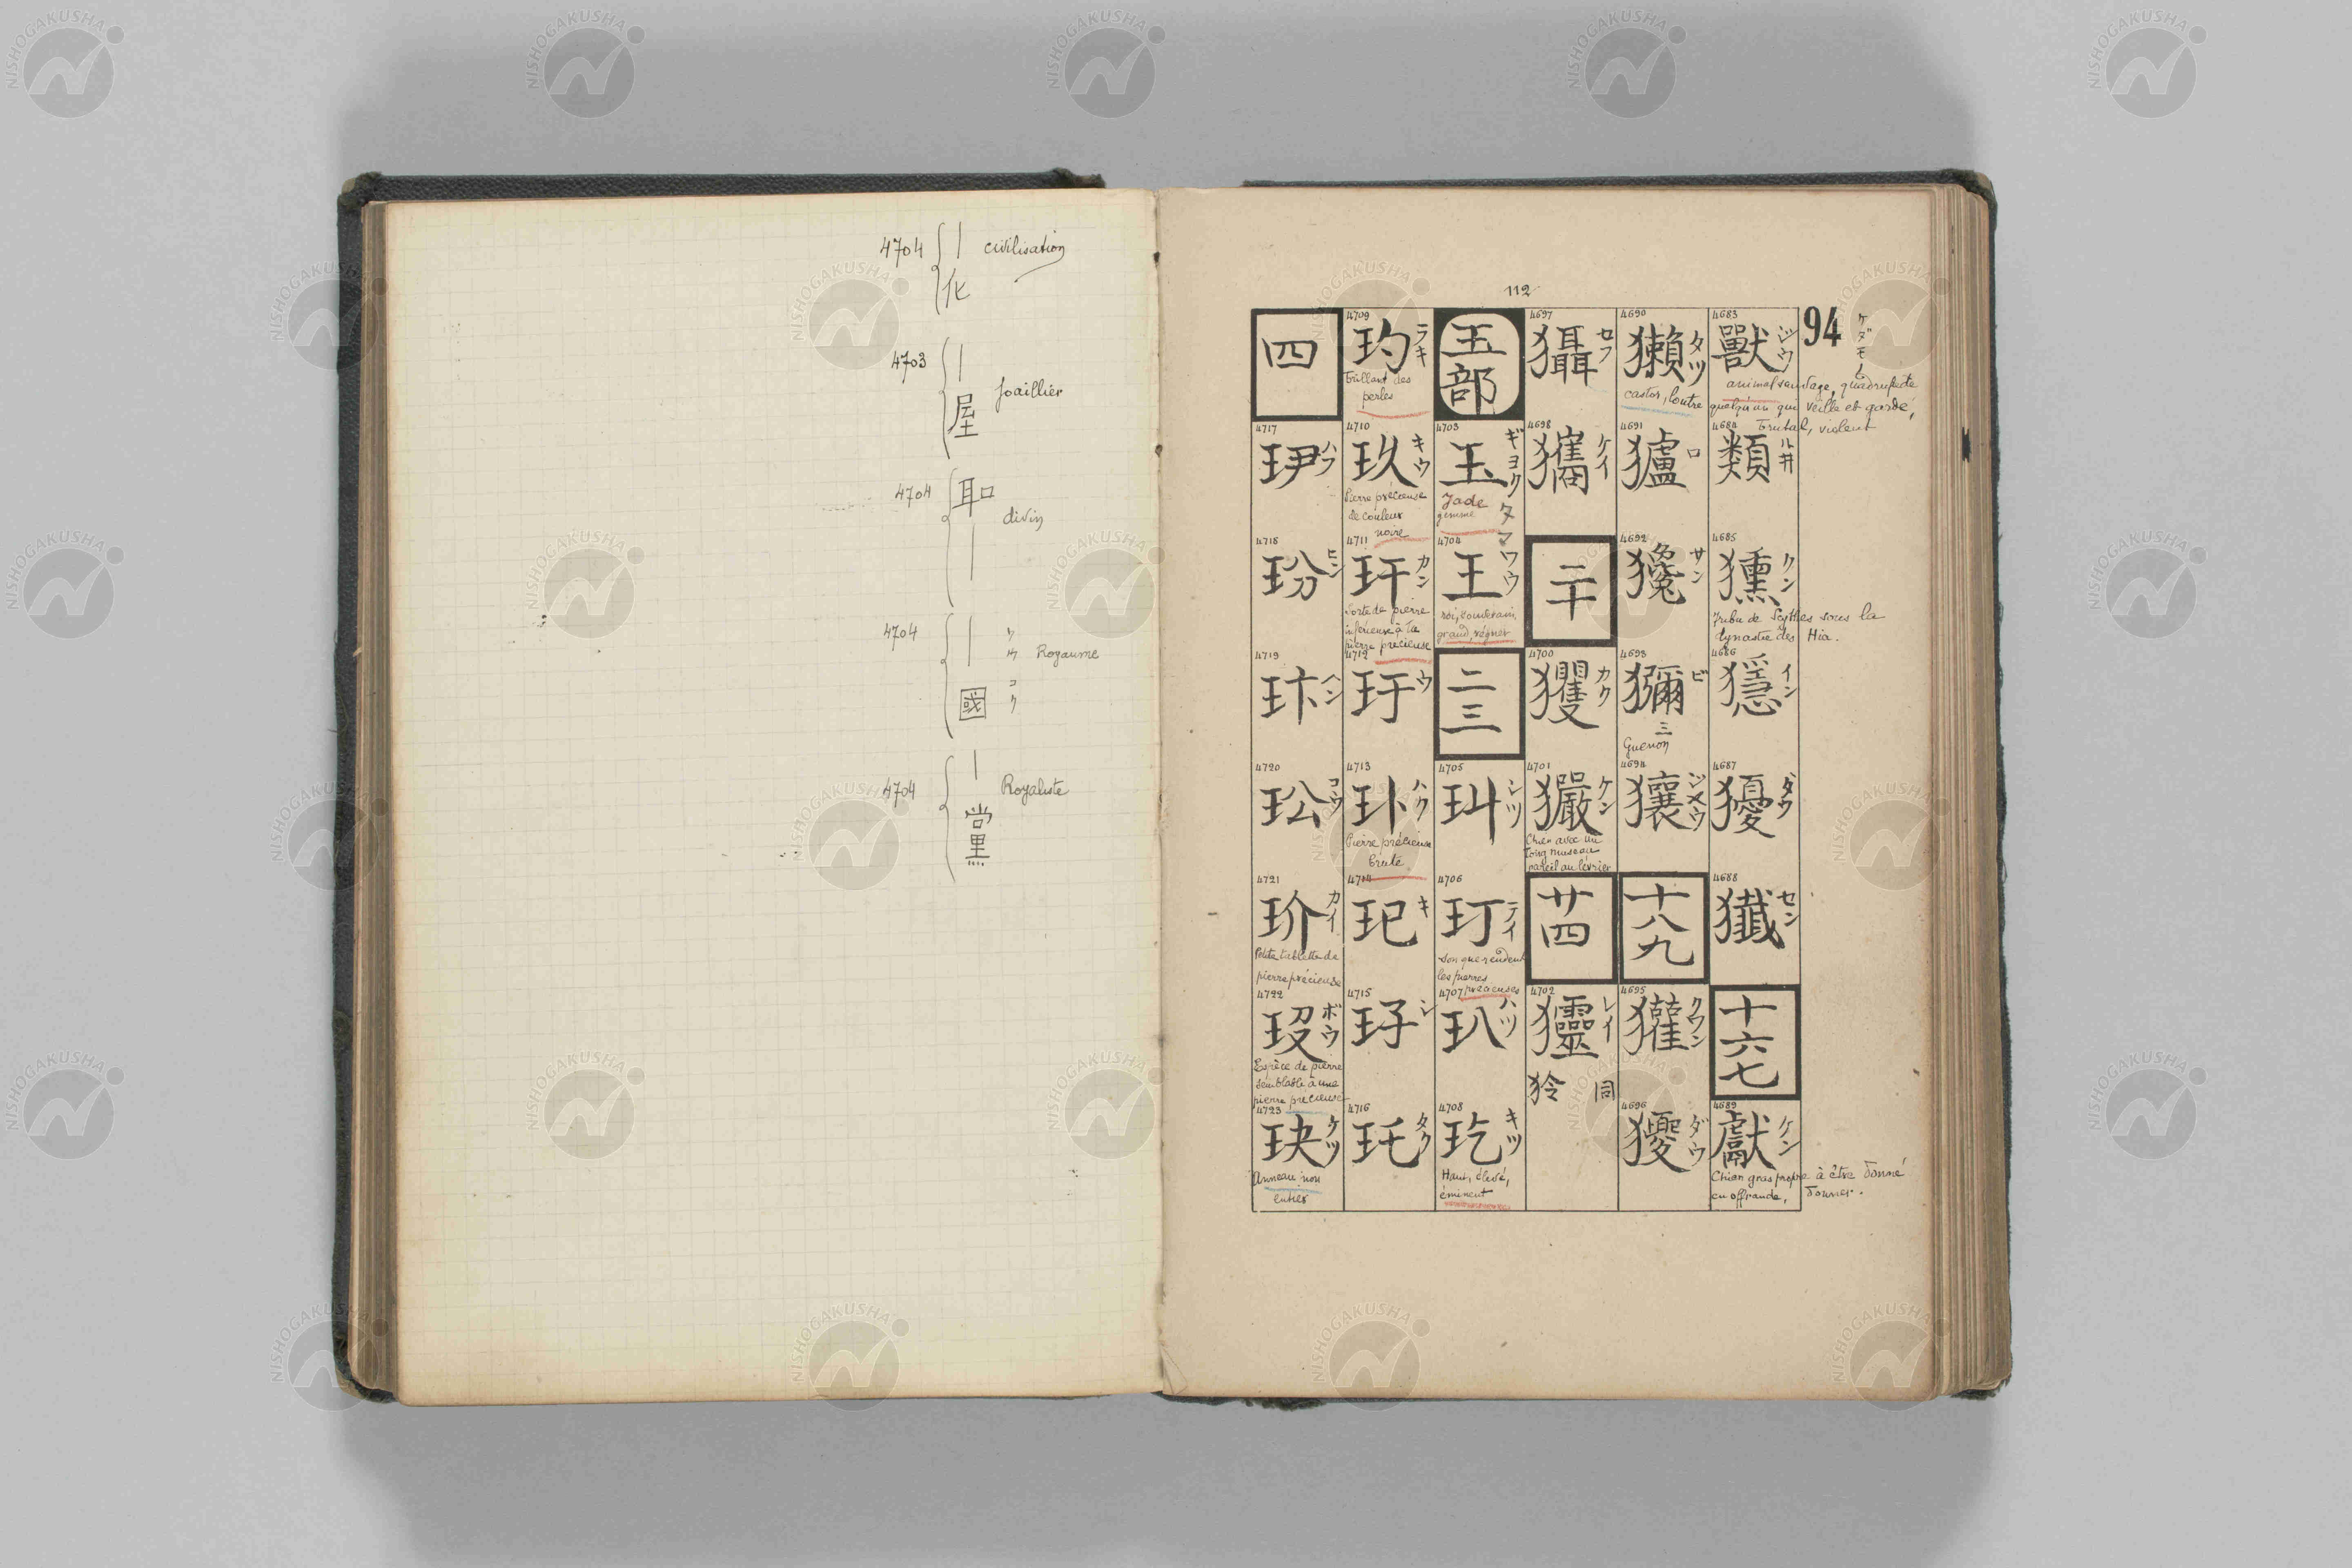 4704 | civilisation
化
4703 | Joaillier
屋
4704 耶 divin
|
4704 | ワウ コク Royaume
國
4704 | Royaliste
黨
112
94
ケダモノ
4683 獸 ジウ
animal sauvage, quadrupède
quelqu'un qui veille et garde,
brutal, violent
4684 類 ル井
4685 獯 クン
Tribu de Scythes sous la
dynastie des Hia.
4686 㺙 イン
4687 獶 ダウ
4688 㺤 セン
十六七
4689 獻 ケン
Chien gras propre à être donné
en offrande, donner.
4690 獺 タツ
castor, loutre
4691 獹 ロ
4692 Saン
4693 獼 ビ
三
Guenon
4694 獽 ジヤウ
十八九
4695 獾 クワン
4696 獿 ダウ
4697 セフ
4698 㺧 ケイ
二十
4700 玃 カク
4701 玁 ケン
Chien avec un
long museau
pareil au lévrier
廿四
4702 レイ
狑 同
玉部
4703 玉 ギヨク タマ
Jade
gemme
4704 王 ワウ
roi, souverain,
grand, régner
二三
4705 玌 シツ
4706 玎 テイ
son que rendent
les pierres
précieuses
4707 玐 ハツ
4708 玘 キツ
Haut, élevé,
éminent
4709 玓 ラキ
brillant des
perles
4710 玖 キウ
Pierre précieuse
de couleur
noire
4711 玕 カン
Sorte de pierre
inférieure à la
pierre précieuse
4712 玗 ウ
4713 玣 ハク
Pierre précieuse
brute
4714 玘 キ
4715 玗 シ
4716 玔 タク
四
4717 ハフ
4718 玢 ヒン
4719 玣 ヘン
4720 玜 コウ
4721 玠 カイ
Petite tablette de
pierre précieuse
4722 玟 ボウ
Espèce de pierre
semblable à une
pierre précieuse
4723 玦 ケツ
Anneau non
entier